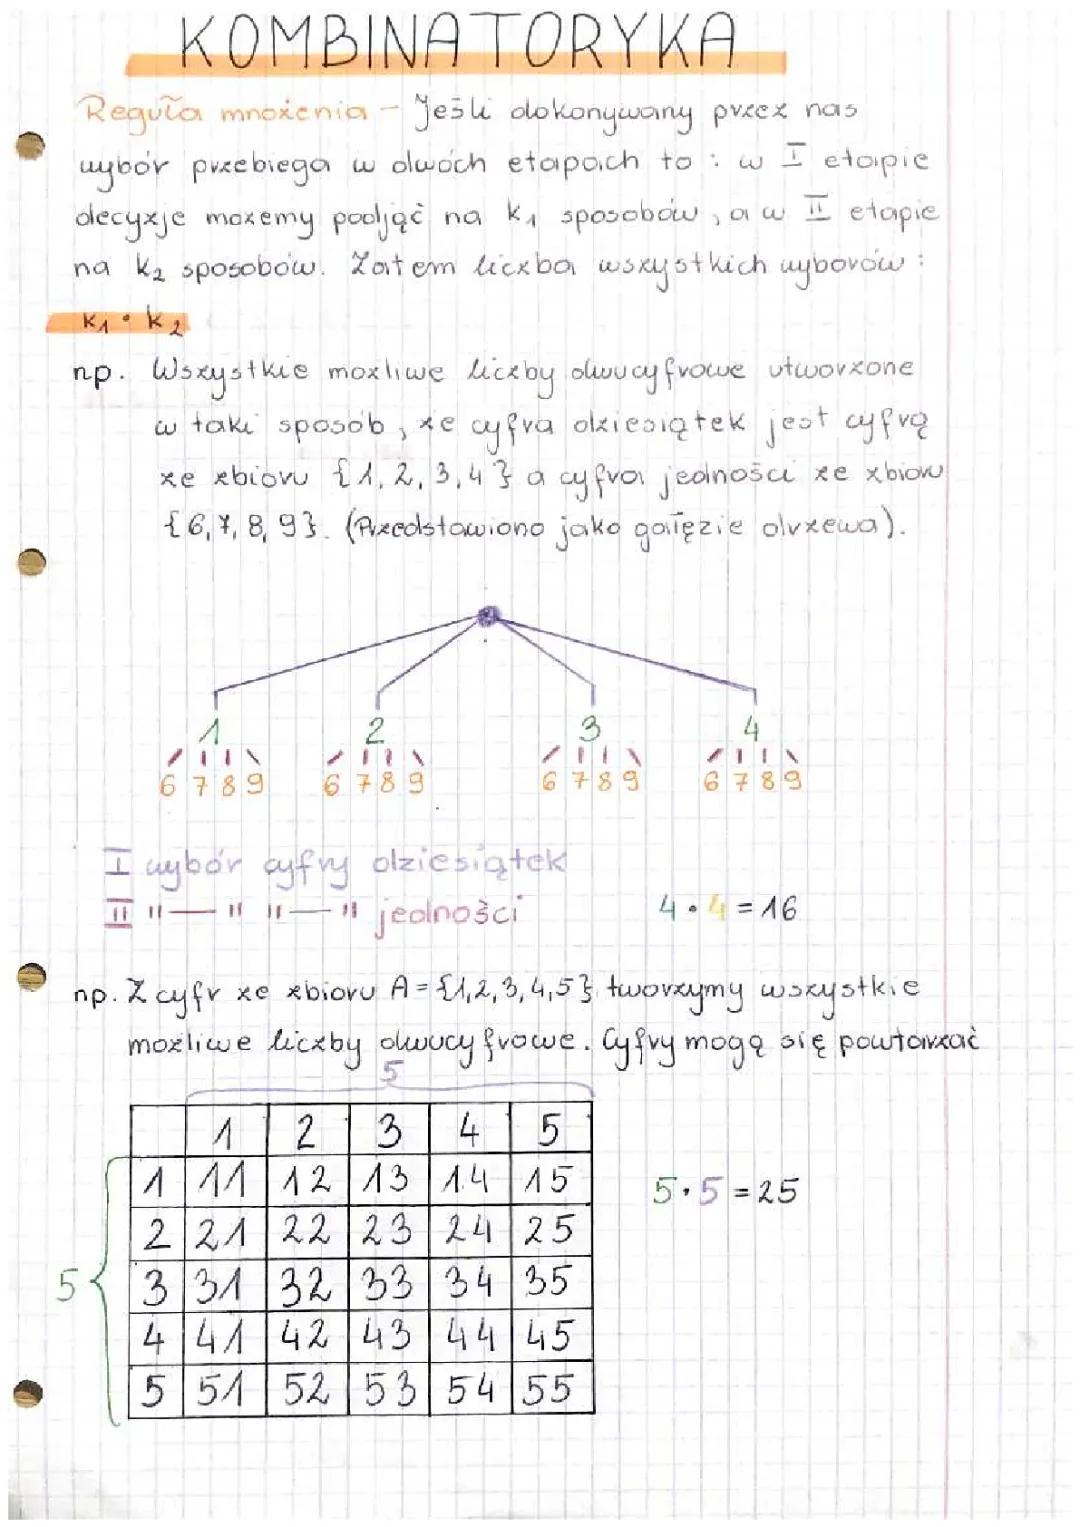 KOMBINATORYKA
Reguła mnożenia - Jeśli dokonywany przez nas
wybór przebiega w dwóch etapach to : w I etapie
decyzje możemy podjąć na k₁ sposobów, a w II etapie
na k₂ sposobów. Zatem liczba wszystkich wyborów :
k₁ • k₂
np. Wszystkie możliwe liczby dwucyfrowe utworzone
w taki sposób, że cyfra dziesiątek jest cyfrą
ze zbioru {1, 2, 3, 4} a cyfra jedności ze zbioru
{6, 7, 8, 9}. (Przedstawiono jako gałęzie drzewa).
1 2 3 4
6 7 8 9 6 7 8 9 6 7 8 9 6 7 8 9
I wybór cyfry dziesiątek
II "—" "—" jedności 4 • 4 = 16
np. Z cyfr ze zbioru A = {1,2,3,4,5} tworzymy wszystkie
możliwe liczby dwucyfrowe. Cyfry mogą się powtarzać
5
1 2 3 4 5
1 11 12 13 14 15
5 • 5 = 25
2 21 22 23 24 25
5
3 31 32 33 34 35
4 41 42 43 44 45
5 51 52 53 54 55